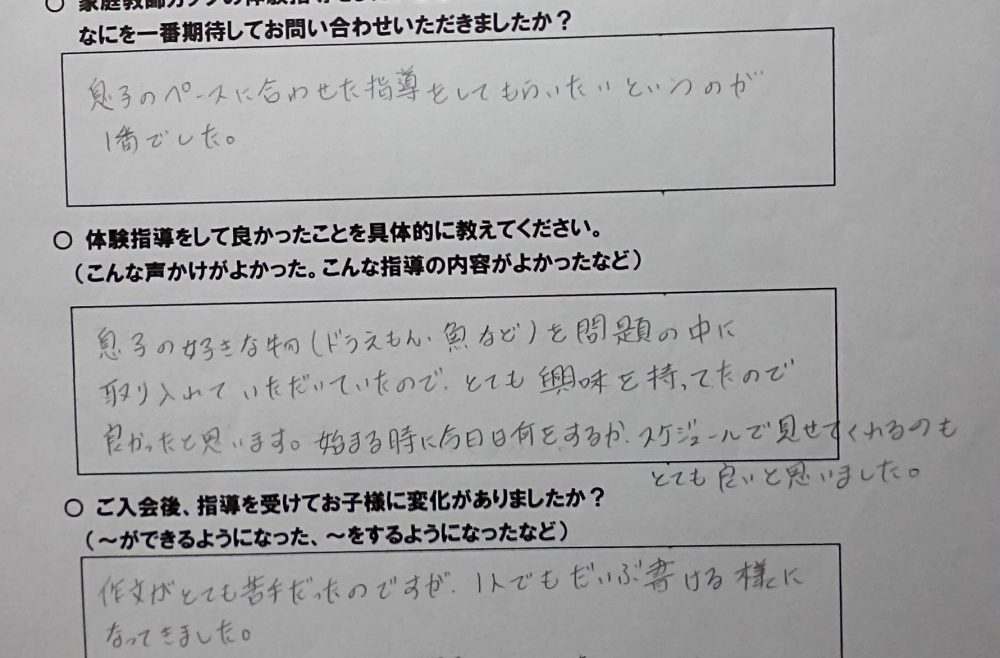 なにを一番期待してお問い合わせいただきましたか？
息子のペースに合わせた指導をしてもらいたいというのが
1番でした。
○ 体験指導をして良かったことを具体的に教えてください。
（こんな声かけがよかった。こんな指導の内容がよかったなど）
息子の好きな物（ドラえもん、魚など）を問題の中に
取り入れていただいていたので、とても興味を持ってたので
良かったと思います。始まる時に今日は何をするか、スケジュールで見せてくれるのも
とても良いと思いました。
○ ご入会後、指導を受けてお子様に変化がありましたか？
（～ができるようになった、～をするようになったなど）
作文がとても苦手だったのですが、1人でもだいぶ書ける様に
なってきました。